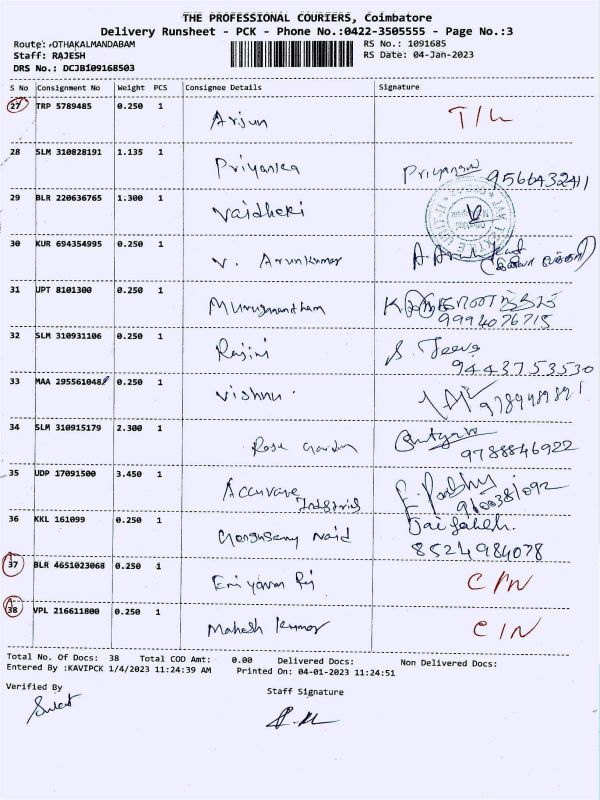 THE PROFESSIONAL COURIERS, Coimbatore
Delivery Runsheet - PCK - Phone No.:0422-3505555 - Page No.:3
Route: OTHAKALMANDABAM
RS No.: 1091685
Staff: RAJESH
RS Date: 04-Jan-2023
DRS No.: DCJB109168503
S No Consignment No Weight PCS Consignee Details Signature
27 TRP 5789485 0.250 1 Arjun
28 SLM 310828191 1.135 1 Priyanka 9566432411
29 BLR 220636765 1.300 1 Vaidheki
30 KUR 694354995 0.250 1 V. Arunkumar
31 UPT 8101300 0.250 1 Muruganantham
9994076715
32 SLM 310931106 0.250 1 Rajini S. Jeeva
9443753530
33 MAA 295561048 0.250 1 Vishnu
34 SLM 310915179 2.300 1 Rose Garden
9788846922
35 UDP 17091500 3.450 1 Accurave
9600381092
36 KKL 161099 0.250 1
8524984078
37 BLR 4651023068 0.250 1
38 VPL 216611800 0.250 1 Mahesh Kumar
Total No. Of Docs: 38 Total COD Amt: 0.00 Delivered Docs: Non Delivered Docs:
Entered By :KAVIPCK 1/4/2023 11:24:39 AM Printed On: 04-01-2023 11:24:51
Verified By
Staff Signature